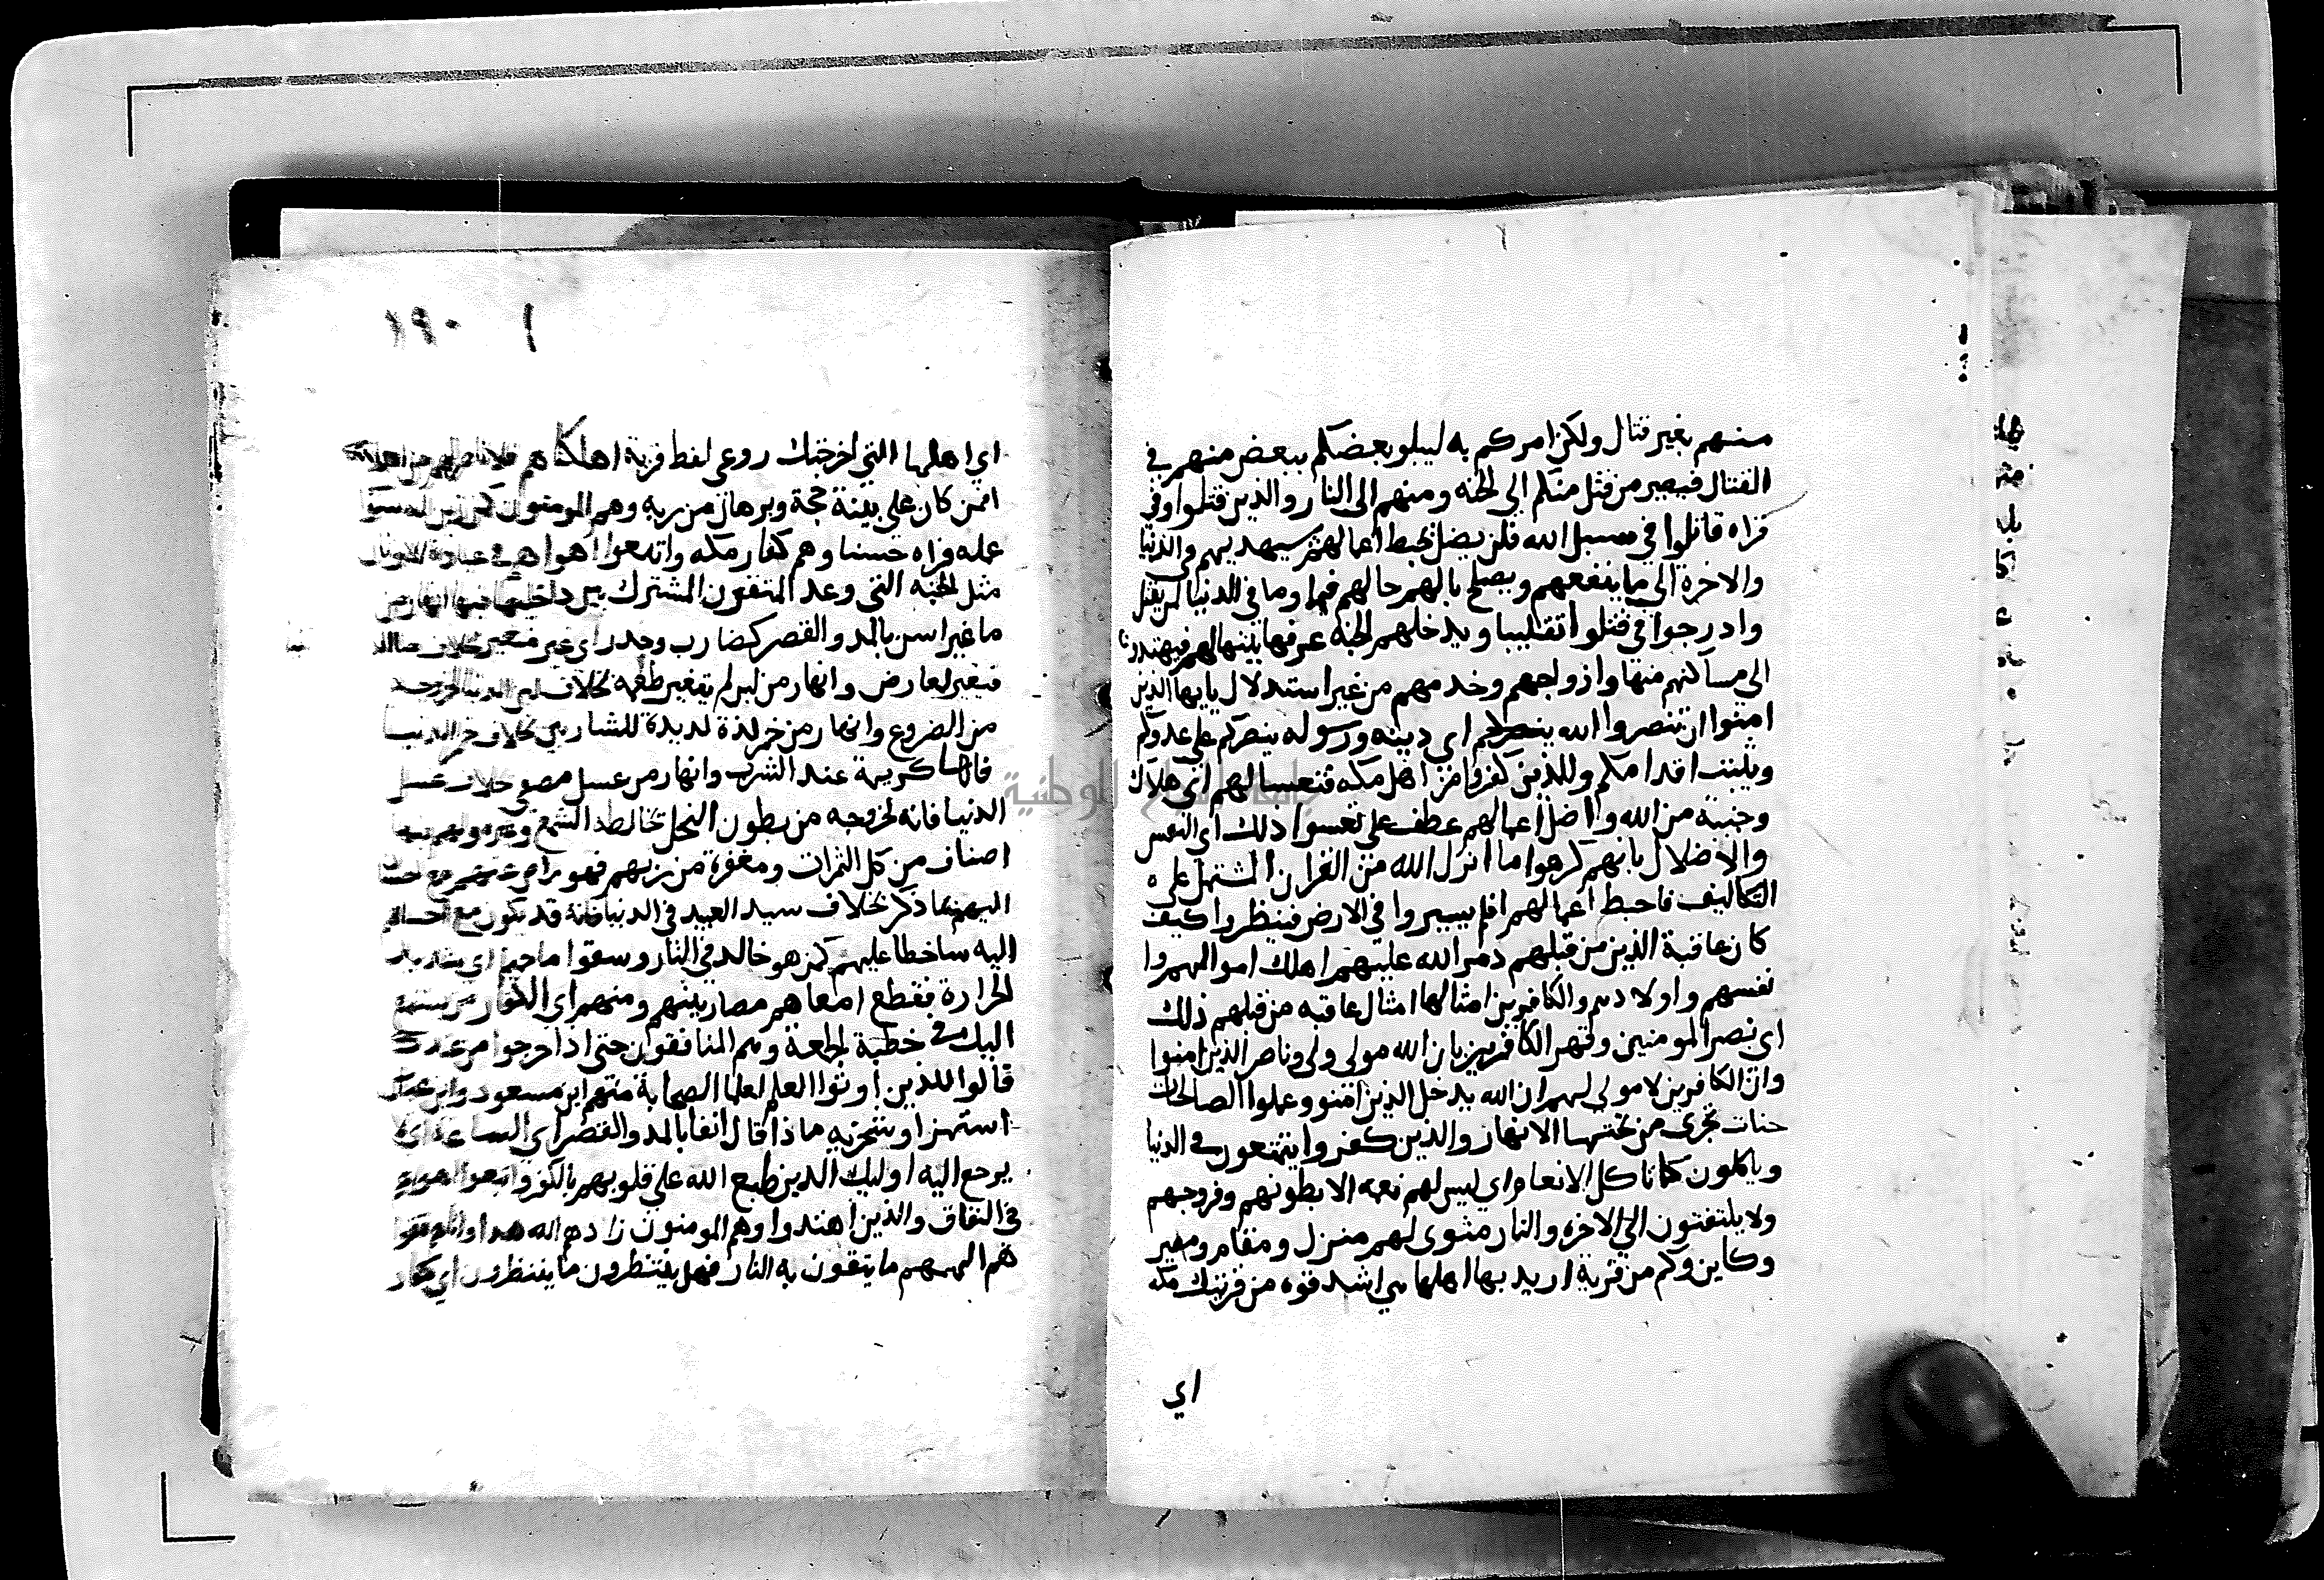 منهم بغير قتال ولكن امركم به ليبلو بعضكم ببعض منهم في
القتال فيصير من قتل منكم الي الجنه ومنهم الى النار والذين قتلوا وفي
قراه قاتلوا في سبيل الله فلن يضل يحبط اعمالهم سيهديهم في الدنيا
والاخرة الى ما ينفعهم ويصلح بالهم حالهم فيهما وما في الدنيا لمن يقتل
وادرجوا في قتلوا تغليبا ويدخلهم الجنه عرفها بينها لهم فيهتدون
الي مساكنهم منها وازواجهم وخدمهم من غير استدلال يايها الذين
امنوا ان تنصروا الله ينصركم اي دينه ورسوله ينصركم علي عدوكم
ويثبت اقدامكم والذين كفروا من اهل مكه فتعسا لهم اي هلاك
وخيبة من الله واضل اعمالهم عطف علي تعسوا ذلك اي التعس
والاضلال بانهم كرهوا ما انزل الله من القران المشتمل علي
التكاليف فاحبط اعمالهم افلم يسيروا في الارض فينظروا كيف
كان عاقبة الذين من قبلهم دمر الله عليهم اهلك اموالهم وا
نفسهم واولادهم والكافرين امثالها امثال عاقبه من قبلهم ذلك
اي نصر المومنين وقهر الكافرين بان الله مولى ولي وناصر الذين امنوا
وان الكافرين لا مولي لهم ان الله يدخل الذين امنو وعملوا الصالحات
جنات تجرى من تحتها الانهار والذين كفروا يتمتعون في الدنيا
وياكلون كما تاكل الانعام اي ليس لهم نعمه الا بطونهم وفروجهم
ولا يلتفتون الي الاخره والنار مثوى لهم منزل ومقام ومصير
وكاين وكم من قرية اريد بها اهلها هي اشد قوه من قريتك مكه
اي
١٩٠
اي اهلها التي اخرجتك روعي لفظ قرية اهلكناهم فلا ناصر لهم من اهلاكنا
افمن كان علي بينة حجة وبرهان من ربه وهم المومنون كمن زين له سوا
عمله فراه حسنا وهم كفار مكه واتبعوا اهواهم في عبادة الاوثان
مثل الجنه التي وعد المتقون المشترك بين داخليها فيها انهار من
ما غير اسن بالمد والقصر كضارب وحذر اي غير متغير بخلاف ما الدنيا
فيتغير لعارض وانهار من لبن لم يتغير طعمه بخلاف لبن الدنيا لخروجه
من الضروع وانهار من خمر لذة لذيذة للشاربين بخلاف خمر الدنيا
فانها كريهة عند الشرب وانهار من عسل مصفي بخلاف عسل
الدنيا فانه لخروجه من بطون النحل يخالطه الشمع وغيره ولهم فيها
اصناف من كل الثمرات ومغفرة من ربهم فهو راض عنهم مع احسانه
اليهم بما ذكر بخلاف سيد العبيد في الدنيا فانه قد يكون مع احسانه
اليه ساخطا عليهم كمن هو خالد في النار وسقوا ما حميما اي شديد
الحرارة فقطع امعاهم مصارينهم ومنهم اي الكفار من يستمع
اليك في خطبة الجمعة وهم المنافقون حتى اذا خرجوا من عندك
قالوا للذين اوتوا العلم لعلما الصحابة منهم ابن مسعود وابن عباس
استهزا وسخرية ماذا قال انفا بالمد والقصر اي الساعة اي لا
يرجع اليه اوليك الذين طبع الله علي قلوبهم بالكفر واتبعوا اهواهم
في النفاق والذين اهتدوا وهم المومنون زادهم الله هدا واتاهم تقوا
هم الهمهم ما يتقون به النار فهل ينتظرون ما ينتظرون اي كفار